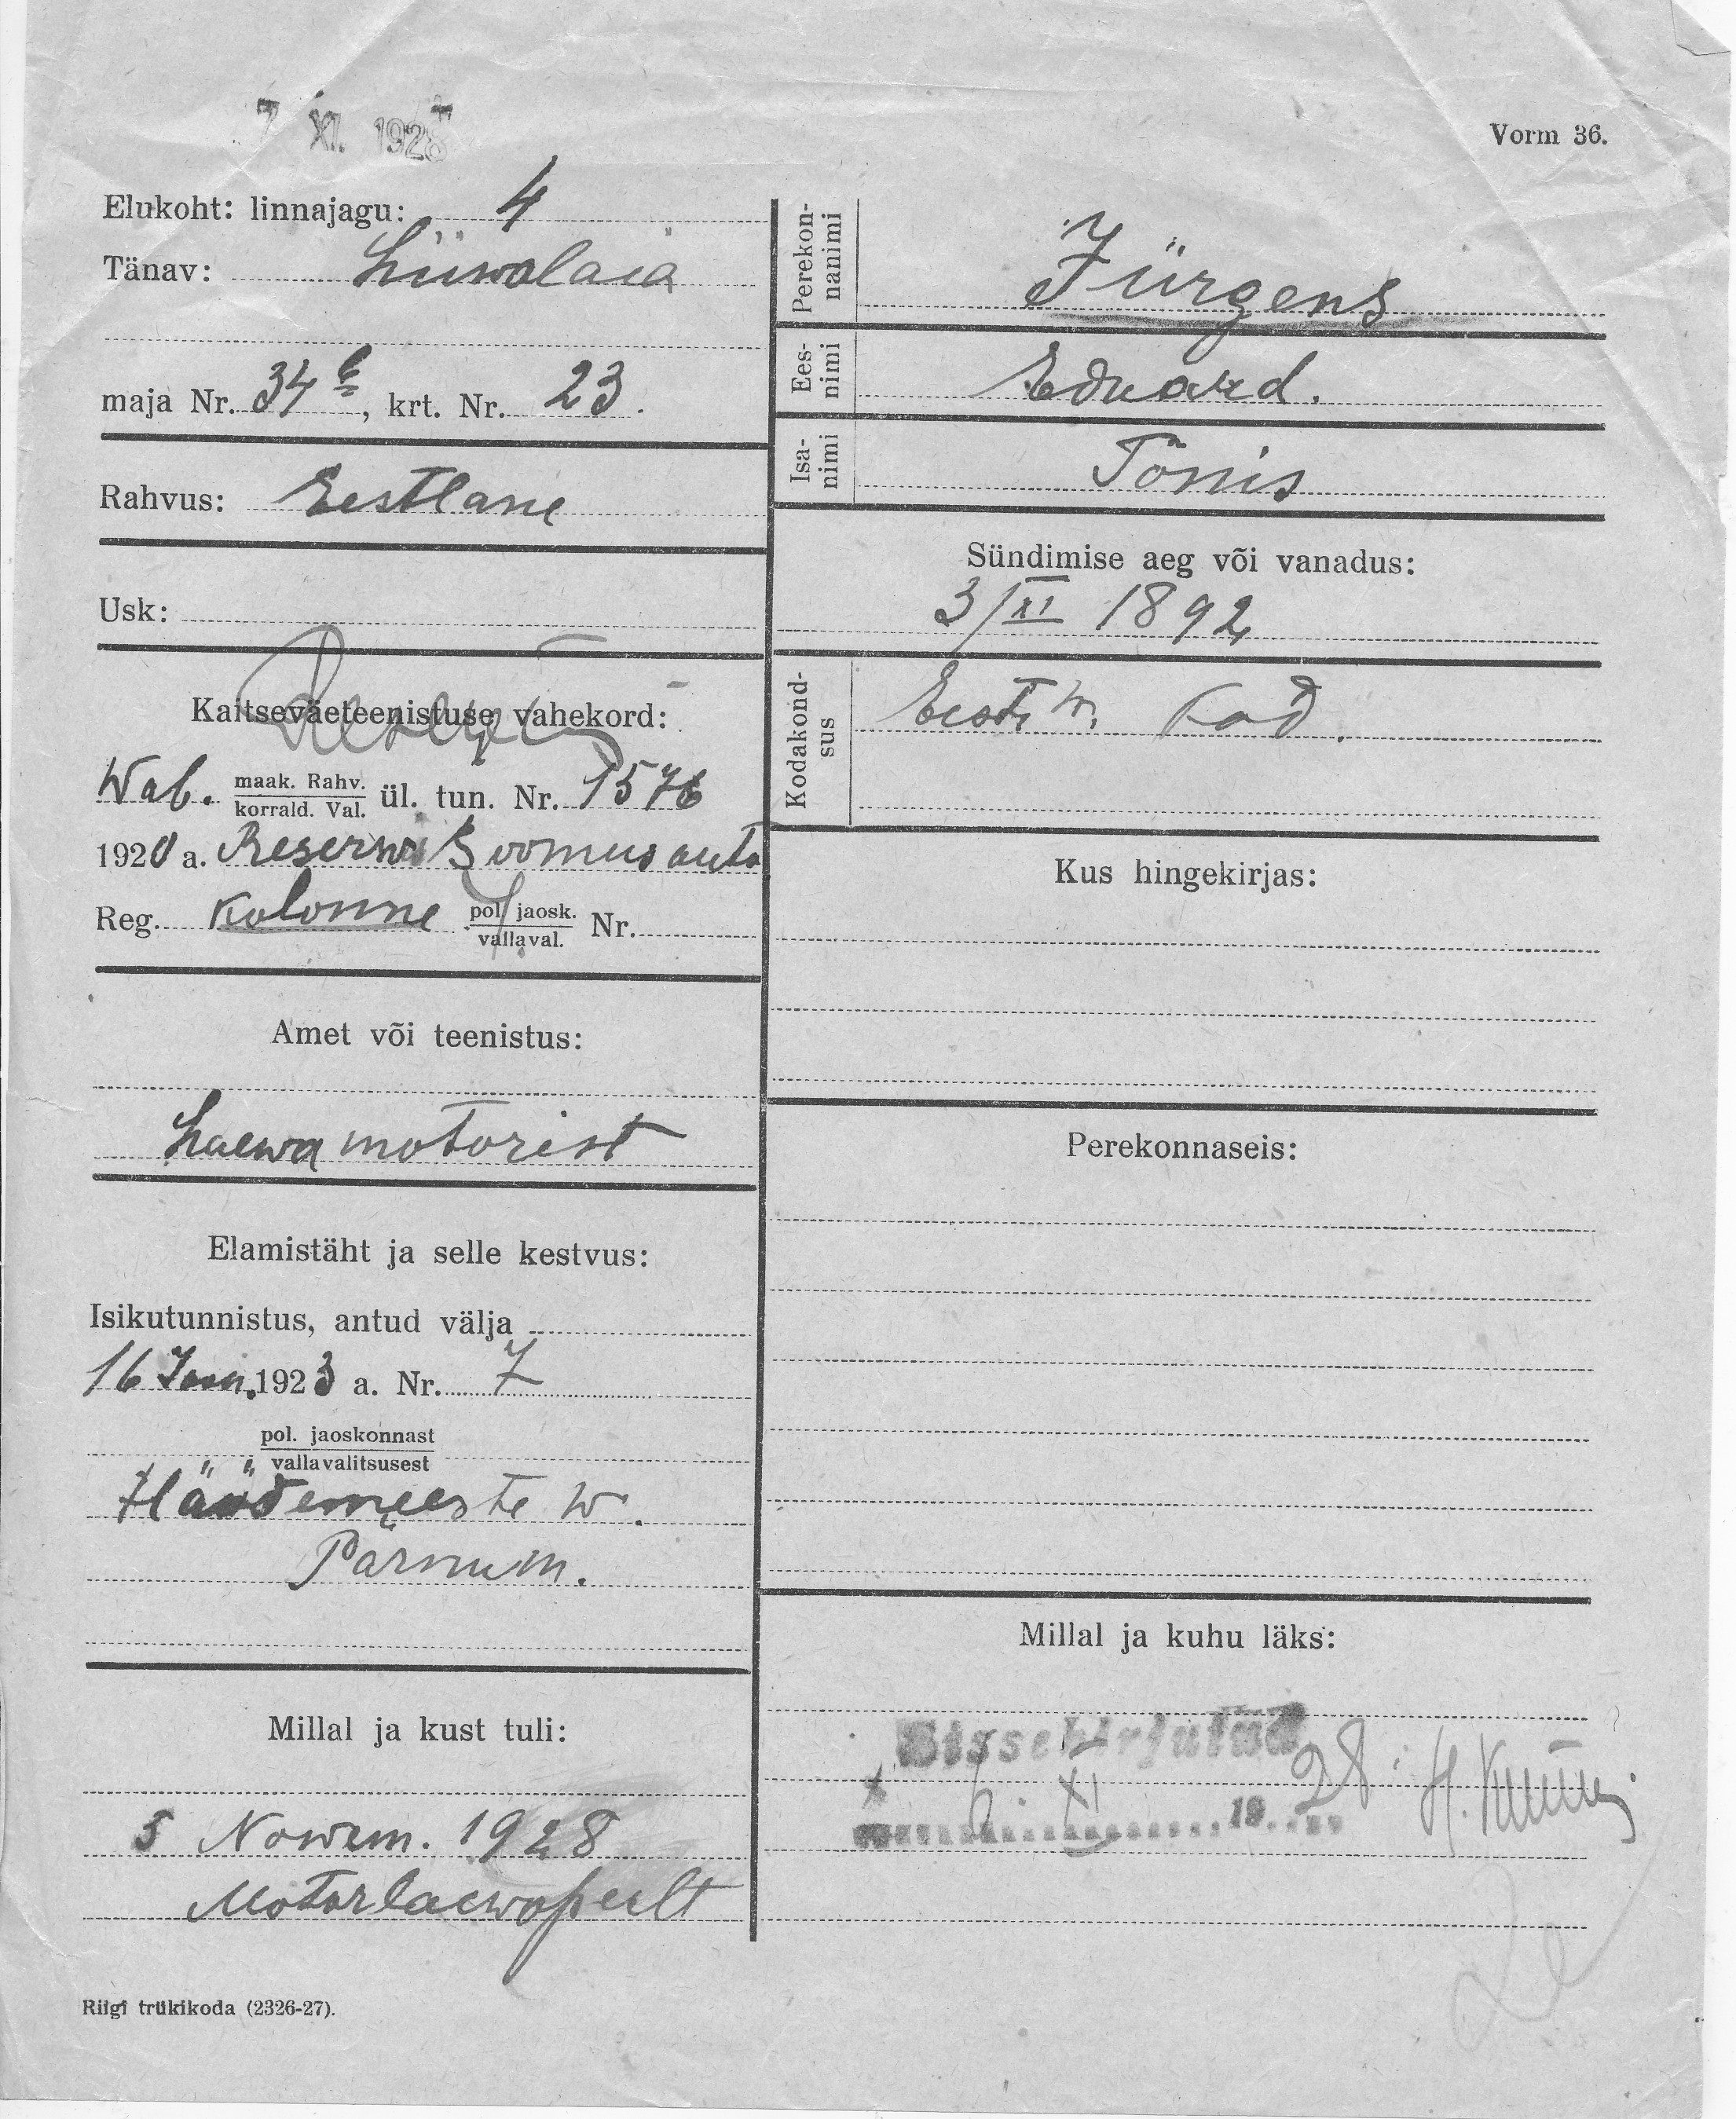 7 XI. 1928
Vorm 36.
Elukoht: linnajagu: 4
Tänav: Liiwalaia
maja Nr. 34 b, krt. Nr. 23.
Rahvus: Eestlane
Usk:
Kaitseväeteenistuse vahekord:
Wab. maak. Rahv. korrald. Val. ül. tun. Nr. 1576
1920 a. Reserwi Soomusauto
Reg. kolonne pol. jaosk. vallaval. Nr.
Amet või teenistus:
Laewa motorist
Elamistäht ja selle kestvus:
Isikutunnistus, antud välja
16 Jaan. 1923 a. Nr. 7
pol. jaoskonnast
vallavalitsusest
Häädemeeste w.
Pärnum.
Millal ja kust tuli:
5 Nowem. 1928
Motorlaewapealt
Riigi trükikoda (2326-27).
Perekonnanimi
Jürgens
Eesnimi
Eduard.
Isanimi
Tõnis
Sündimise aeg või vanadus:
3/XI 1892
Kodakondsus
Eesti w. kod.
Kus hingekirjas:
Perekonnaseis:
Millal ja kuhu läks:
Sissekirjutud
6. XI 1928.